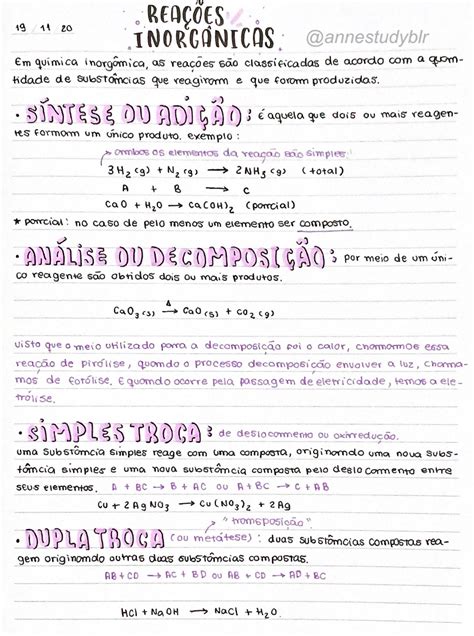 19/11/20
REAÇÕES
INORGÂNICAS
@annestudyblr
Em química inorgâmica, as reações são classificadas de acordo com a quan-
tidade de substâncias que reagiram e que foram produzidas.
• SÍNTESE OU ADIÇÃO: é aquela que dois ou mais reagen-
tes formam um único produto. exemplo:
→ ambos os elementos da reação são simples
3H₂(g) + N₂(g) → 2NH₃(g) (total)
A + B → C
CaO + H₂O → Ca(OH)₂ (parcial)
* parcial: no caso de pelo menos um elemento ser composto.
• ANÁLISE OU DECOMPOSIÇÃO: por meio de um úni-
co reagente são obtidos dois ou mais produtos.
Δ
CaO₃(s) → CaO(s) + CO₂(g)
Visto que o meio utilizado para a decomposição foi o calor, chamarmos essa
reação de pirólise, quando o processo decomposição envolver a luz, chama-
mos de fotólise. E quando ocorre pela passagem de eletricidade, temos a ele-
trólise.
• SIMPLES TROCA: de deslocamento ou oxirredução.
uma substância simples reage com uma composta, originando uma nova subs-
tância simples e uma nova substância composta pelo deslocamento entre
seus elementos. A + BC → B + AC ou A + BC → C + AB
Cu + 2AgNO₃ → Cu(NO₃)₂ + 2Ag
→ "transposição"
• DUPLA TROCA (ou metátese): duas substâncias compostas rea-
gem originando outras duas substâncias compostas.
AB + CD → AC + BD ou AB + CD → AD + BC
HCl + NaOH → NaCl + H₂O.